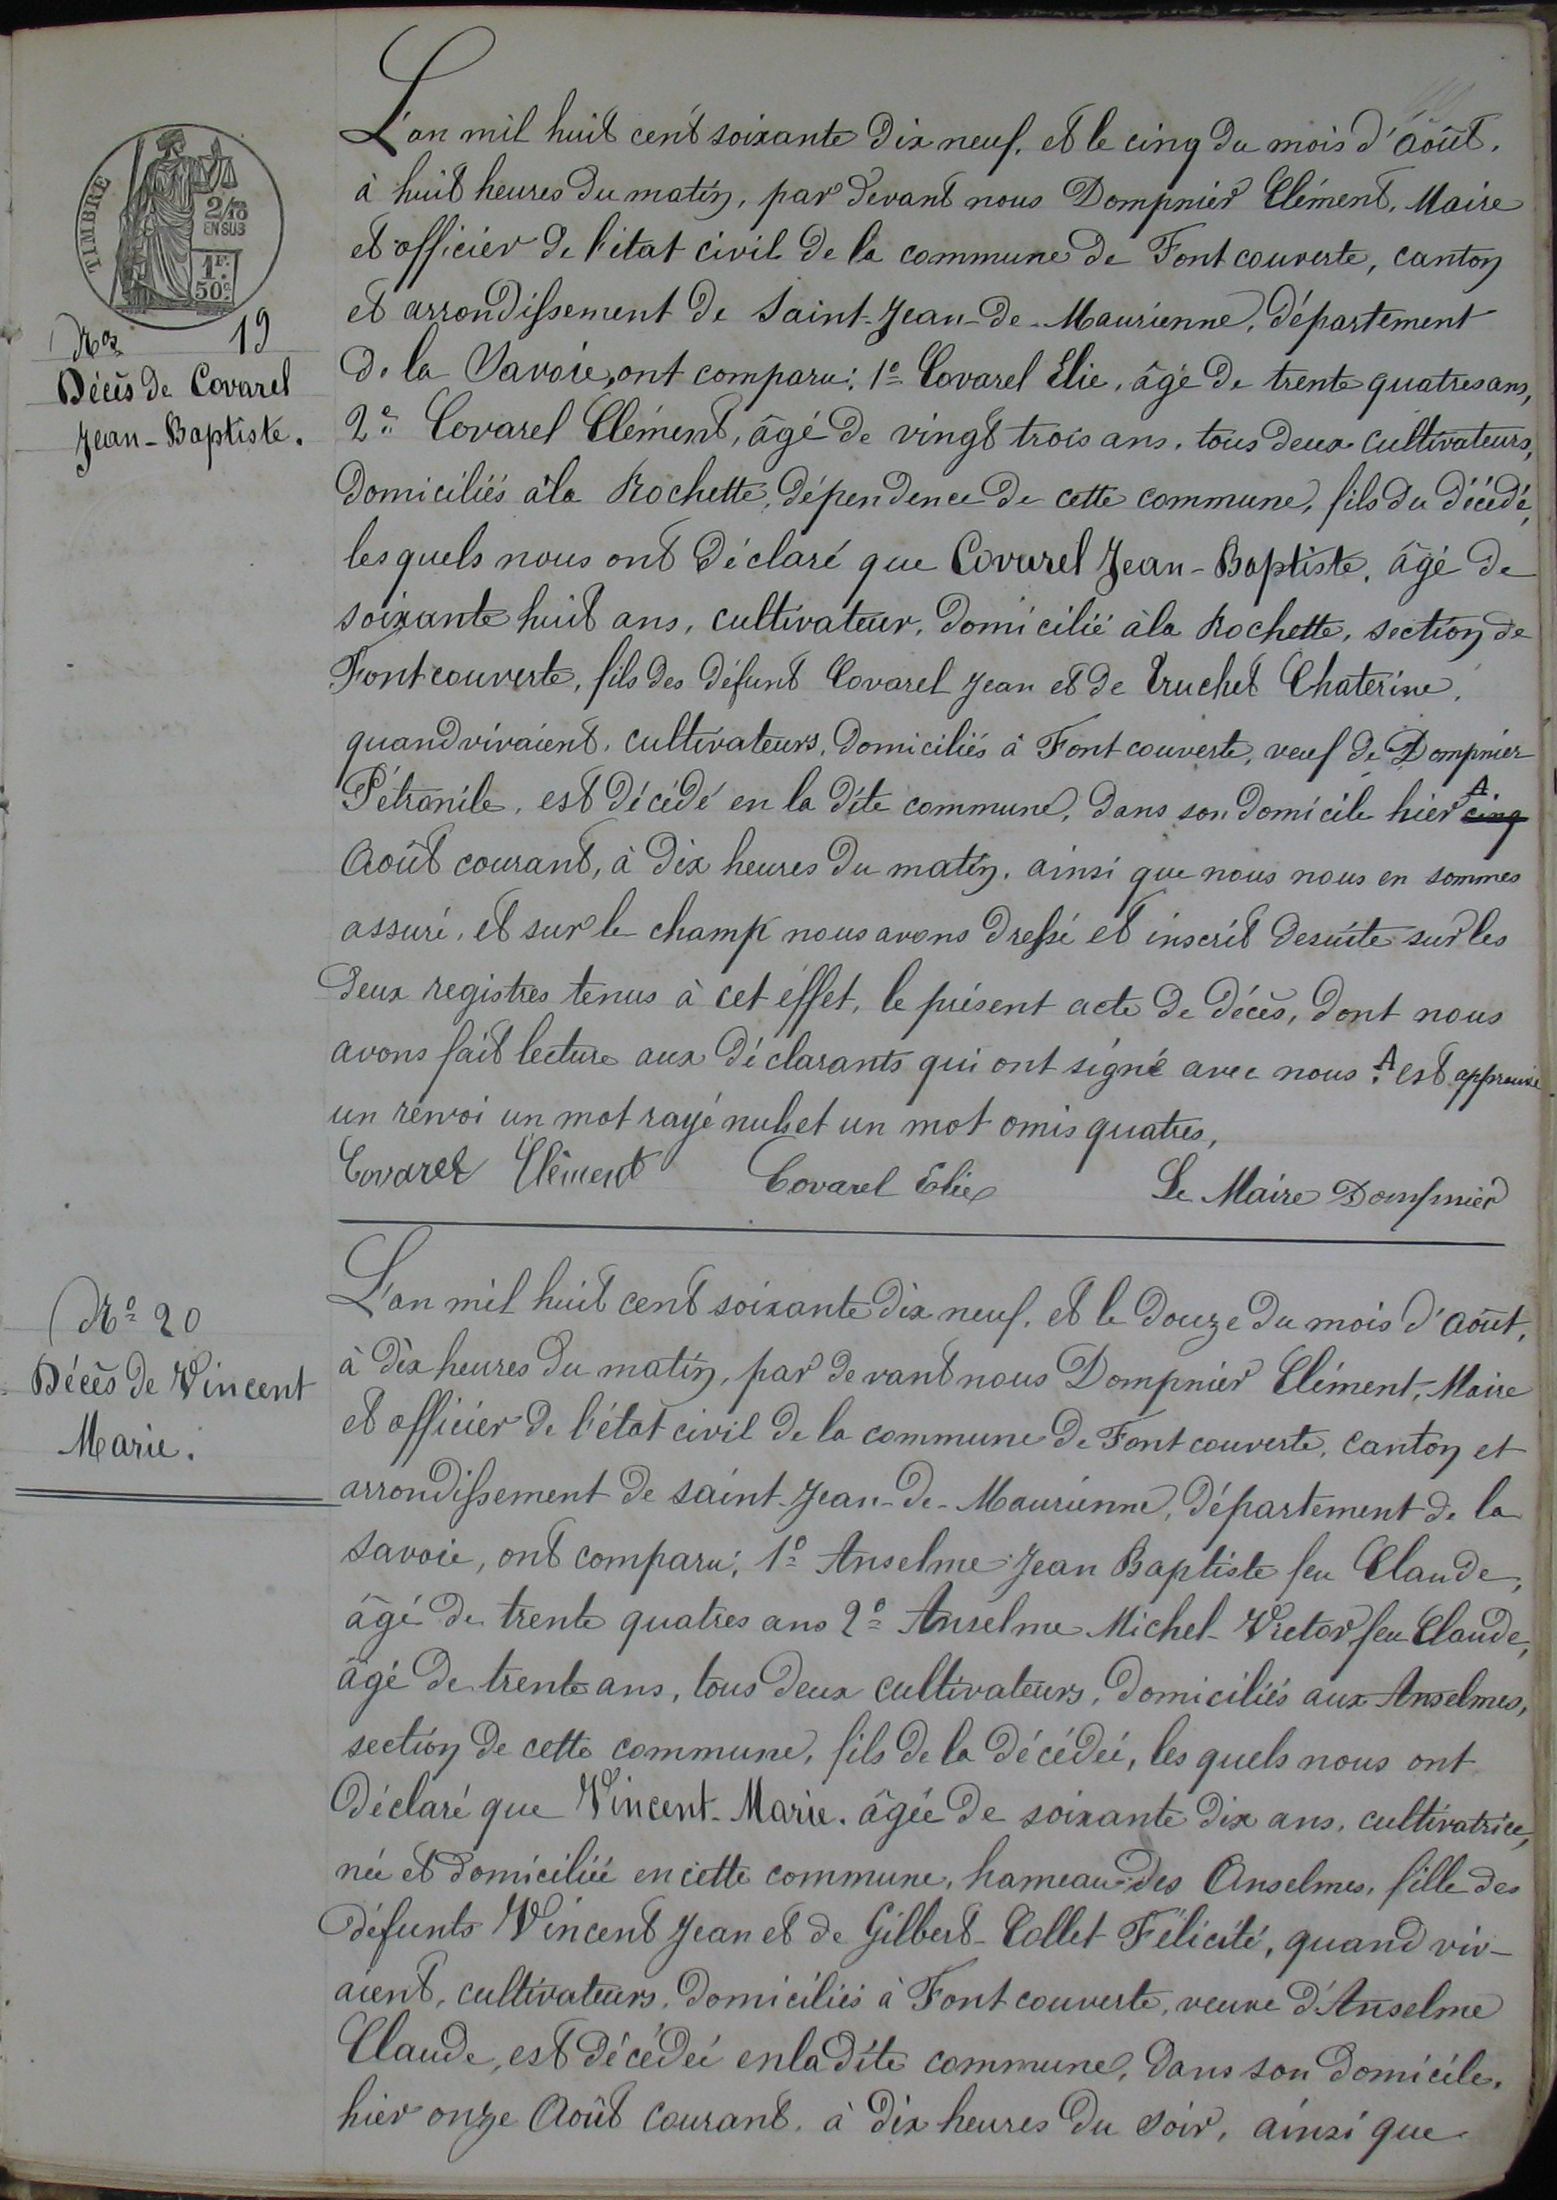 TIMBRE
2/10
EN SUS
1F.
50c.
No 19
Décès de Covarel
Jean-Baptiste.
L'an mil huit cent soixante dix neuf, et le cinq du mois d'août,
à huit heures du matin, par devant nous Dompnier Clément, Maire
et officier de l'état civil de la commune de Fontcouverte, canton
et arrondissement de Saint-Jean-de-Maurienne, département
de la Savoie, ont comparu: 1º Covarel Elie, âgé de trente quatres ans,
2º Covarel Clément, âgé de vingt trois ans, tous deux cultivateurs,
domiciliés à la Rochette, dépendence de cette commune, fils du décédé,
lesquels nous ont déclaré que Covarel Jean-Baptiste, âgé de
soixante huit ans, cultivateur, domicilié à la Rochette, section de
Fontcouverte, fils des défunt Covarel Jean et de Truchet Chaterine,
quand vivaient, cultivateurs, domiciliés à Fontcouverte, veuf de Dompnier
Pétronile, est décédé en la dite commune, dans son domicile hier A cinq
Août courant, à dix heures du matin, ainsi que nous nous en sommes
assuré, et sur le champ nous avons dressé et inscrit desuite sur les
deux registres tenus à cet effet, le présent acte de décès, dont nous
avons fait lecture aux déclarants qui ont signé avec nous. A est approuvé
un renvoi un mot rayé nul et un mot omis quatres,
Covarel Clément Covarel Elie Le Maire Dompnier
No 20
Décès de Vincent
Marie.
L'an mil huit cent soixante dix neuf, et le douze du mois d'août,
à dix heures du matin, par devant nous Dompnier Clément, Maire
et officier de l'état civil de la commune de Fontcouverte, canton et
arrondissement de saint-Jean-de-Maurienne, département de la
savoie, ont comparu: 1º Anselme Jean Baptiste feu Claude,
âgé de trente quatres ans 2º Anselme Michel-Victor feu Claude,
âgé de trente ans, tous deux cultivateurs, domiciliés aux Anselmes,
section de cette commune, fils de la décédée, lesquels nous ont
déclaré que Vincent-Marie, âgée de soixante dix ans, cultivatrice,
née et domiciliée en cette commune, hameau des Anselmes, fille des
défunts Vincent Jean et de Gilbert-Collet Félicité, quand viv-
aient, cultivateurs, domiciliés à Fontcouverte, veuve d'Anselme
Claude, est décédée en la dite commune, dans son domicile,
hier onze Août courant, à dix heures du soir, ainsi que